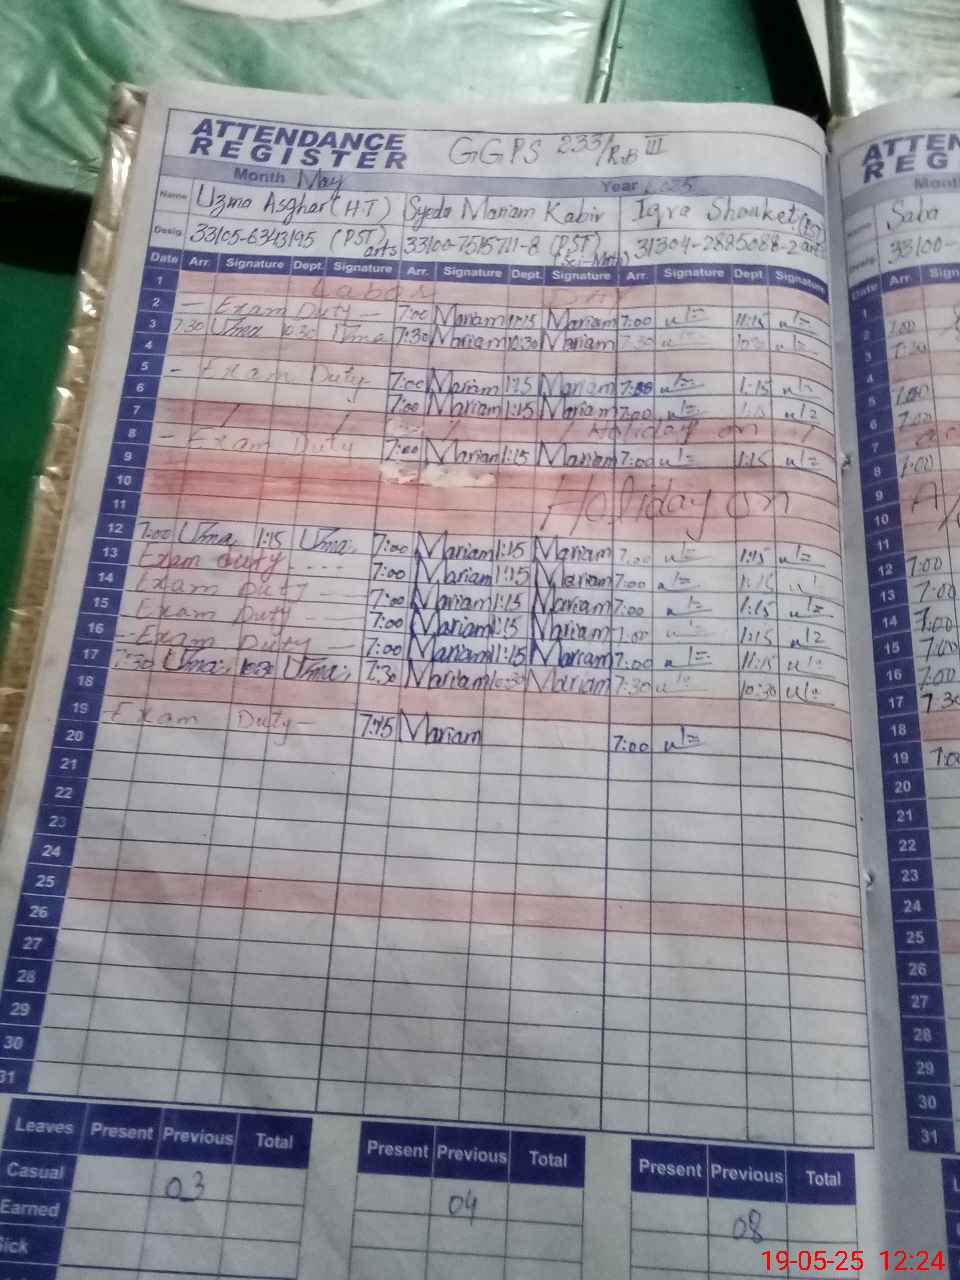 ATTENDANCE REGISTER GGPS 233/R.B III
Month May Year 2025
Name Uzma Asghar (H.T) Syeda Mariam Kabir Iqra Shouket
Desig. 33105-6343195 (PST) arts 33100-7515711-8 (PST) (Sci-Math) 31304-2885088-2 arts
Date Arr. Signature Dept. Signature Arr. Signature Dept. Signature Arr. Signature Dept. Signature
1 Labour Day
2 - Exam Duty - 7:00 Mariam 1:15 Mariam 7:00 1:15
3 7:30 Uzma 10:30 Uzma 7:30 Mariam 10:30 Mariam 7:30 10:30
4
5 - Exam Duty 7:00 Mariam 1:15 Mariam 7:00 1:15
6 7:00 Mariam 1:15 Mariam 7:00 1:15
7 Holiday on
8 - Exam Duty 7:00 Mariam 1:15 Mariam 7:00 1:15
9
10 Holiday on
11
12 7:00 Uzma 1:15 Uzma 7:00 Mariam 1:15 Mariam 7:00 1:15
13 Exam duty 7:00 Mariam 1:15 Mariam 7:00 1:15
14 Exam Duty 7:00 Mariam 1:15 Mariam 7:00 1:15
15 Exam Duty 7:00 Mariam 1:15 Mariam 7:00 1:15
16 Exam Duty - 7:00 Mariam 1:15 Mariam 7:00 1:15
17 7:30 Uzma 10:30 Uzma 7:30 Mariam 10:30 Mariam 7:30 10:30
18
19 Exam Duty - 7:15 Mariam 7:00
20
21
22
23
24
25
26
27
28
29
30
31
Leaves Present Previous Total Present Previous Total Present Previous Total
Casual 03 04 08
Earned
Sick
ATTEN
REG
Month
Saba
33100-
Date Arr. Sign
1
2 7:00
3 7:30
4
5 7:00
6 7:00
7
8 7:00
9
10
11
12 7:00
13 7:00
14 7:00
15 7:00
16 7:00
17 7:30
18
19 7:00
20
21
22
23
24
25
26
27
28
29
30
31
19-05-25 12:24